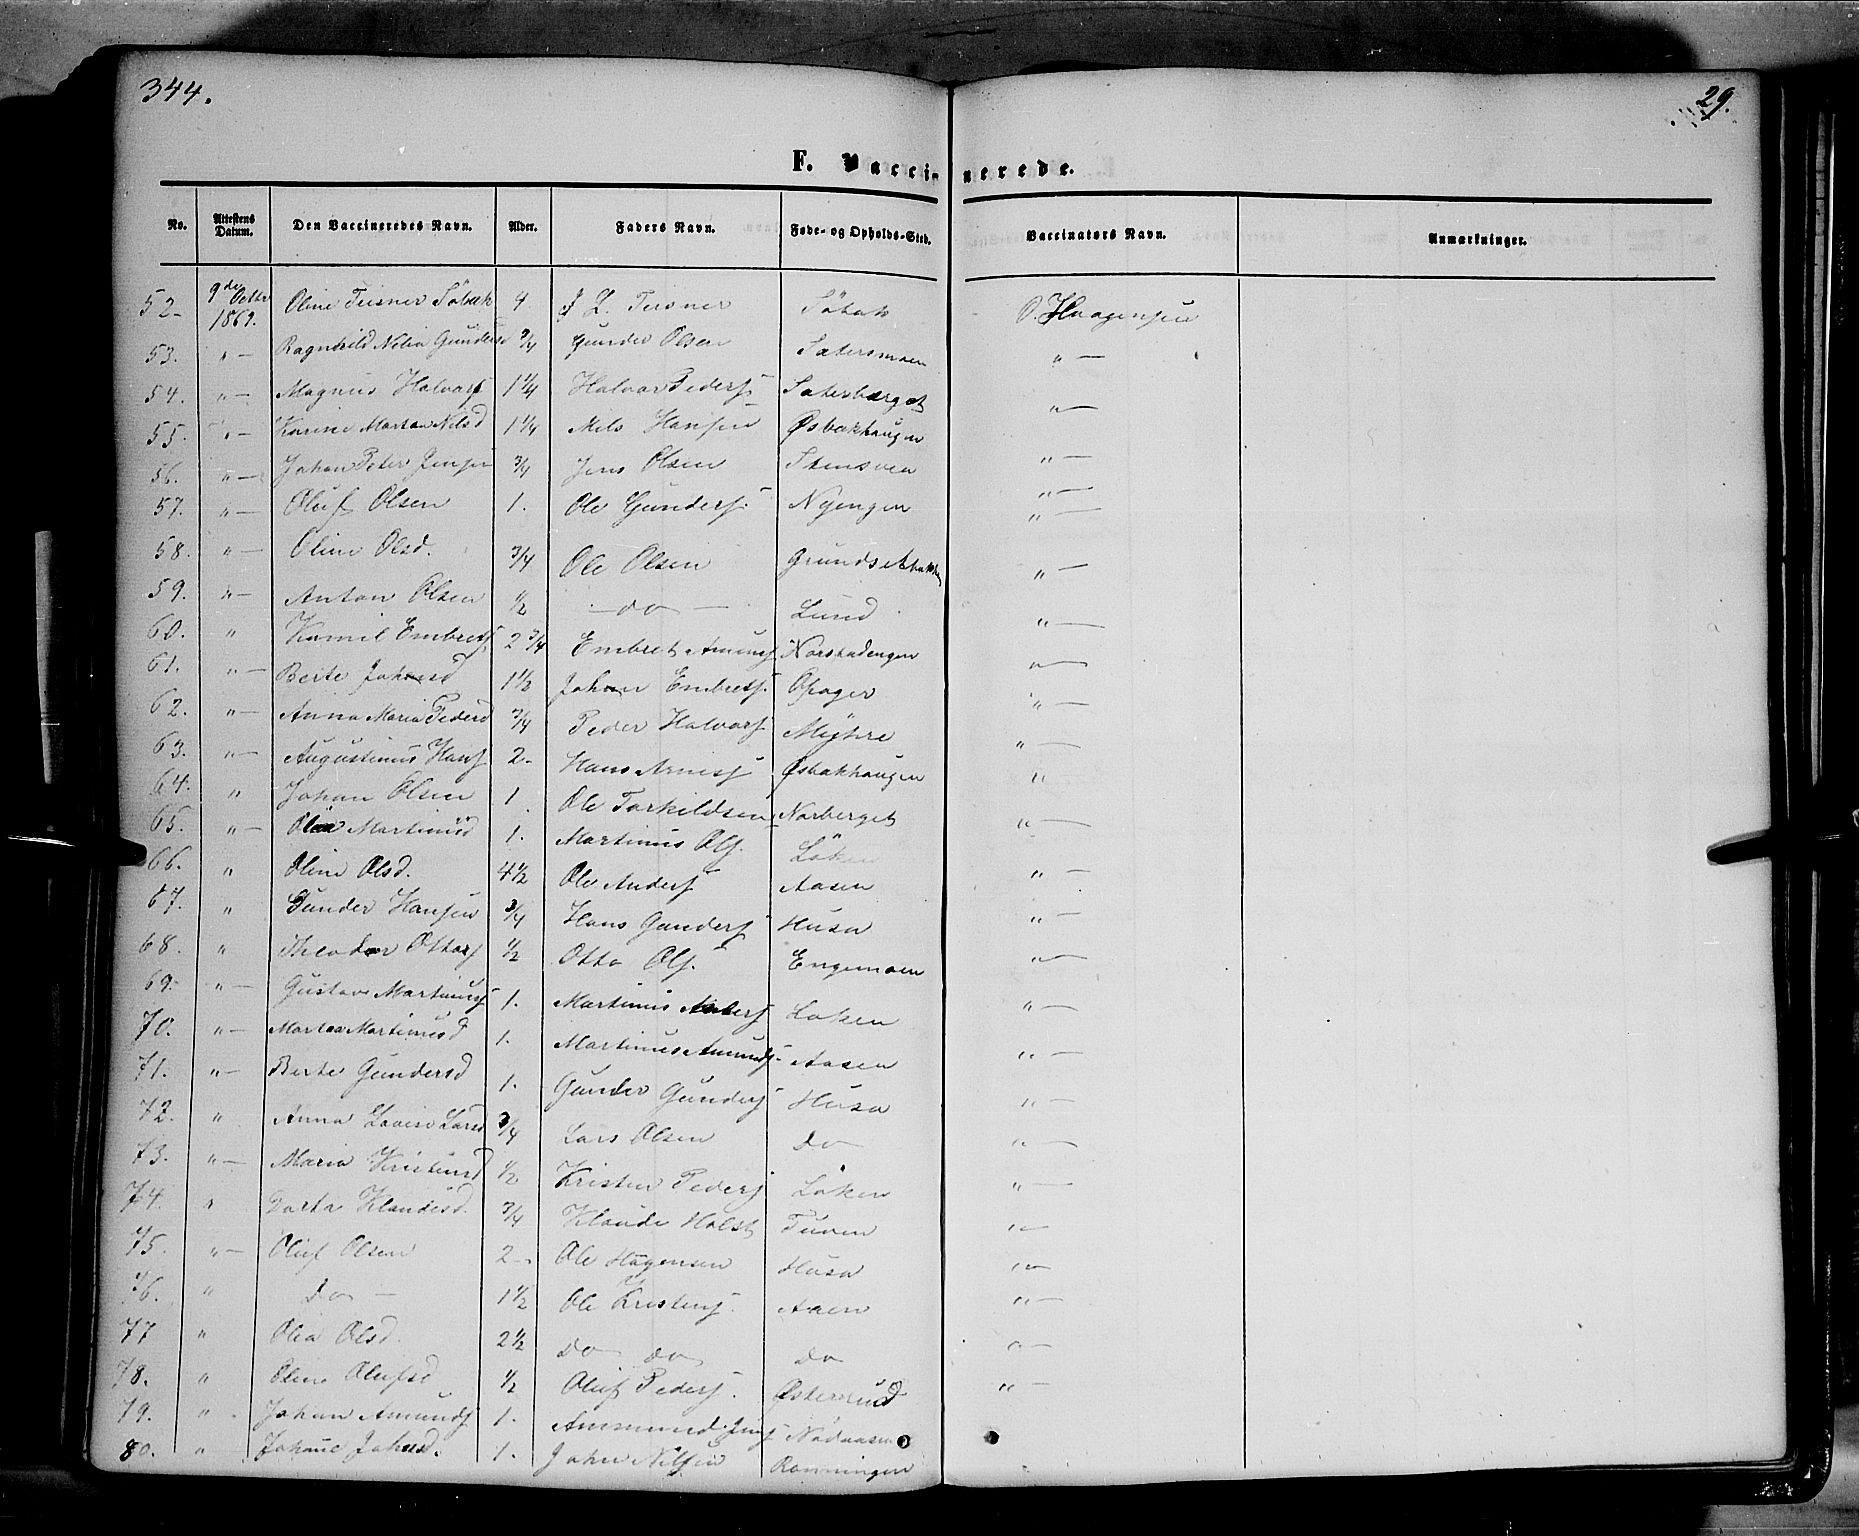 344.
29.
F. Vaccinerede.
No. Attestens Datum. Den Vaccineredes Navn. Alder. Faders Navn. Føde- og Opholds-Sted. Vaccinators Navn. Anmærkninger.
52- 9de Octbr 1869. Oline Teisner Söbak 4. Z. Teisner Söbak O. Haagensen
53. " — Ragnhild Gunders 3/4 Gunder Olsen Satersmoen " —
54. " — Magnus Halvors 1 1/4 Halvor Peders Satersberget " —
55. " — Karine Martea Nilsd 1 1/4 Nils Hansen Øsbakhaugen
56. " — Johan Peter Jensen 3/4 Jens Olsen Stensvea " —
57. " — Oluf Olsen 1. Ole Gunders. Nyengen " —
58. " — Oline Olsd. 3/4 Ole Olsen Grundsetbakken " —
59. " — Anton Olsen 1/2 — do — Lund " —
60. " Kamil Embrets. 2 3/4 Embret Amunds Norstadengen " —
61. " — Berte Johansd 1 1/2 Johan Embrets. Opager " —
62. " — Anna Maria Pedersd 3/4 Peder Halvors Myhre " —
63. " — Augustinus Hans 2- Hans Arnes Øsbakhaugen "
64. " Johan Olsen 1. Ole Torkildsen Norberget " —
65. " — Martinusd 1. Martinus Ols. Löken
66. " Oline Olsd. 4 1/2 Ole Anders Aasen " —
67. " Gunder Hansen 3/4 Hans Gunders Husa " —
68. " Theodor Ottos 1/2 Otto Ols. Engemoen " —
69. " — Gustav Martinus 1. Martinus Löken " —
70. " — Martea Martinusd 1. Martinus Amunds. Aasen " —
71. " — Berte Gundersd 1. Gunder Gunders Husa " —
72. " Anna Lovise Larsd 3/4 Lars Olsen Do " —
73. " — Maria Kristensd 1/2 Kristen Peders Löken " —
74. " Dorte Klaudesd. 3/4 Klaude Holst Tuven " —
75. " — Oluf Olsen 2- Ole Hagensen Husa " —
76. " Do — 1 1/2 Ole Kristens. Aaen " —
77 " Olia Olsd. 2 1/2 Do Do Do " —
78. " Oline Olufsd 1/2 Oluf Peders. Østerrud " —
79. " Johan Amunds 1. Ammund Nödaasen
80. " Johanne Johnsd. 1. John Nilsen Rönningen